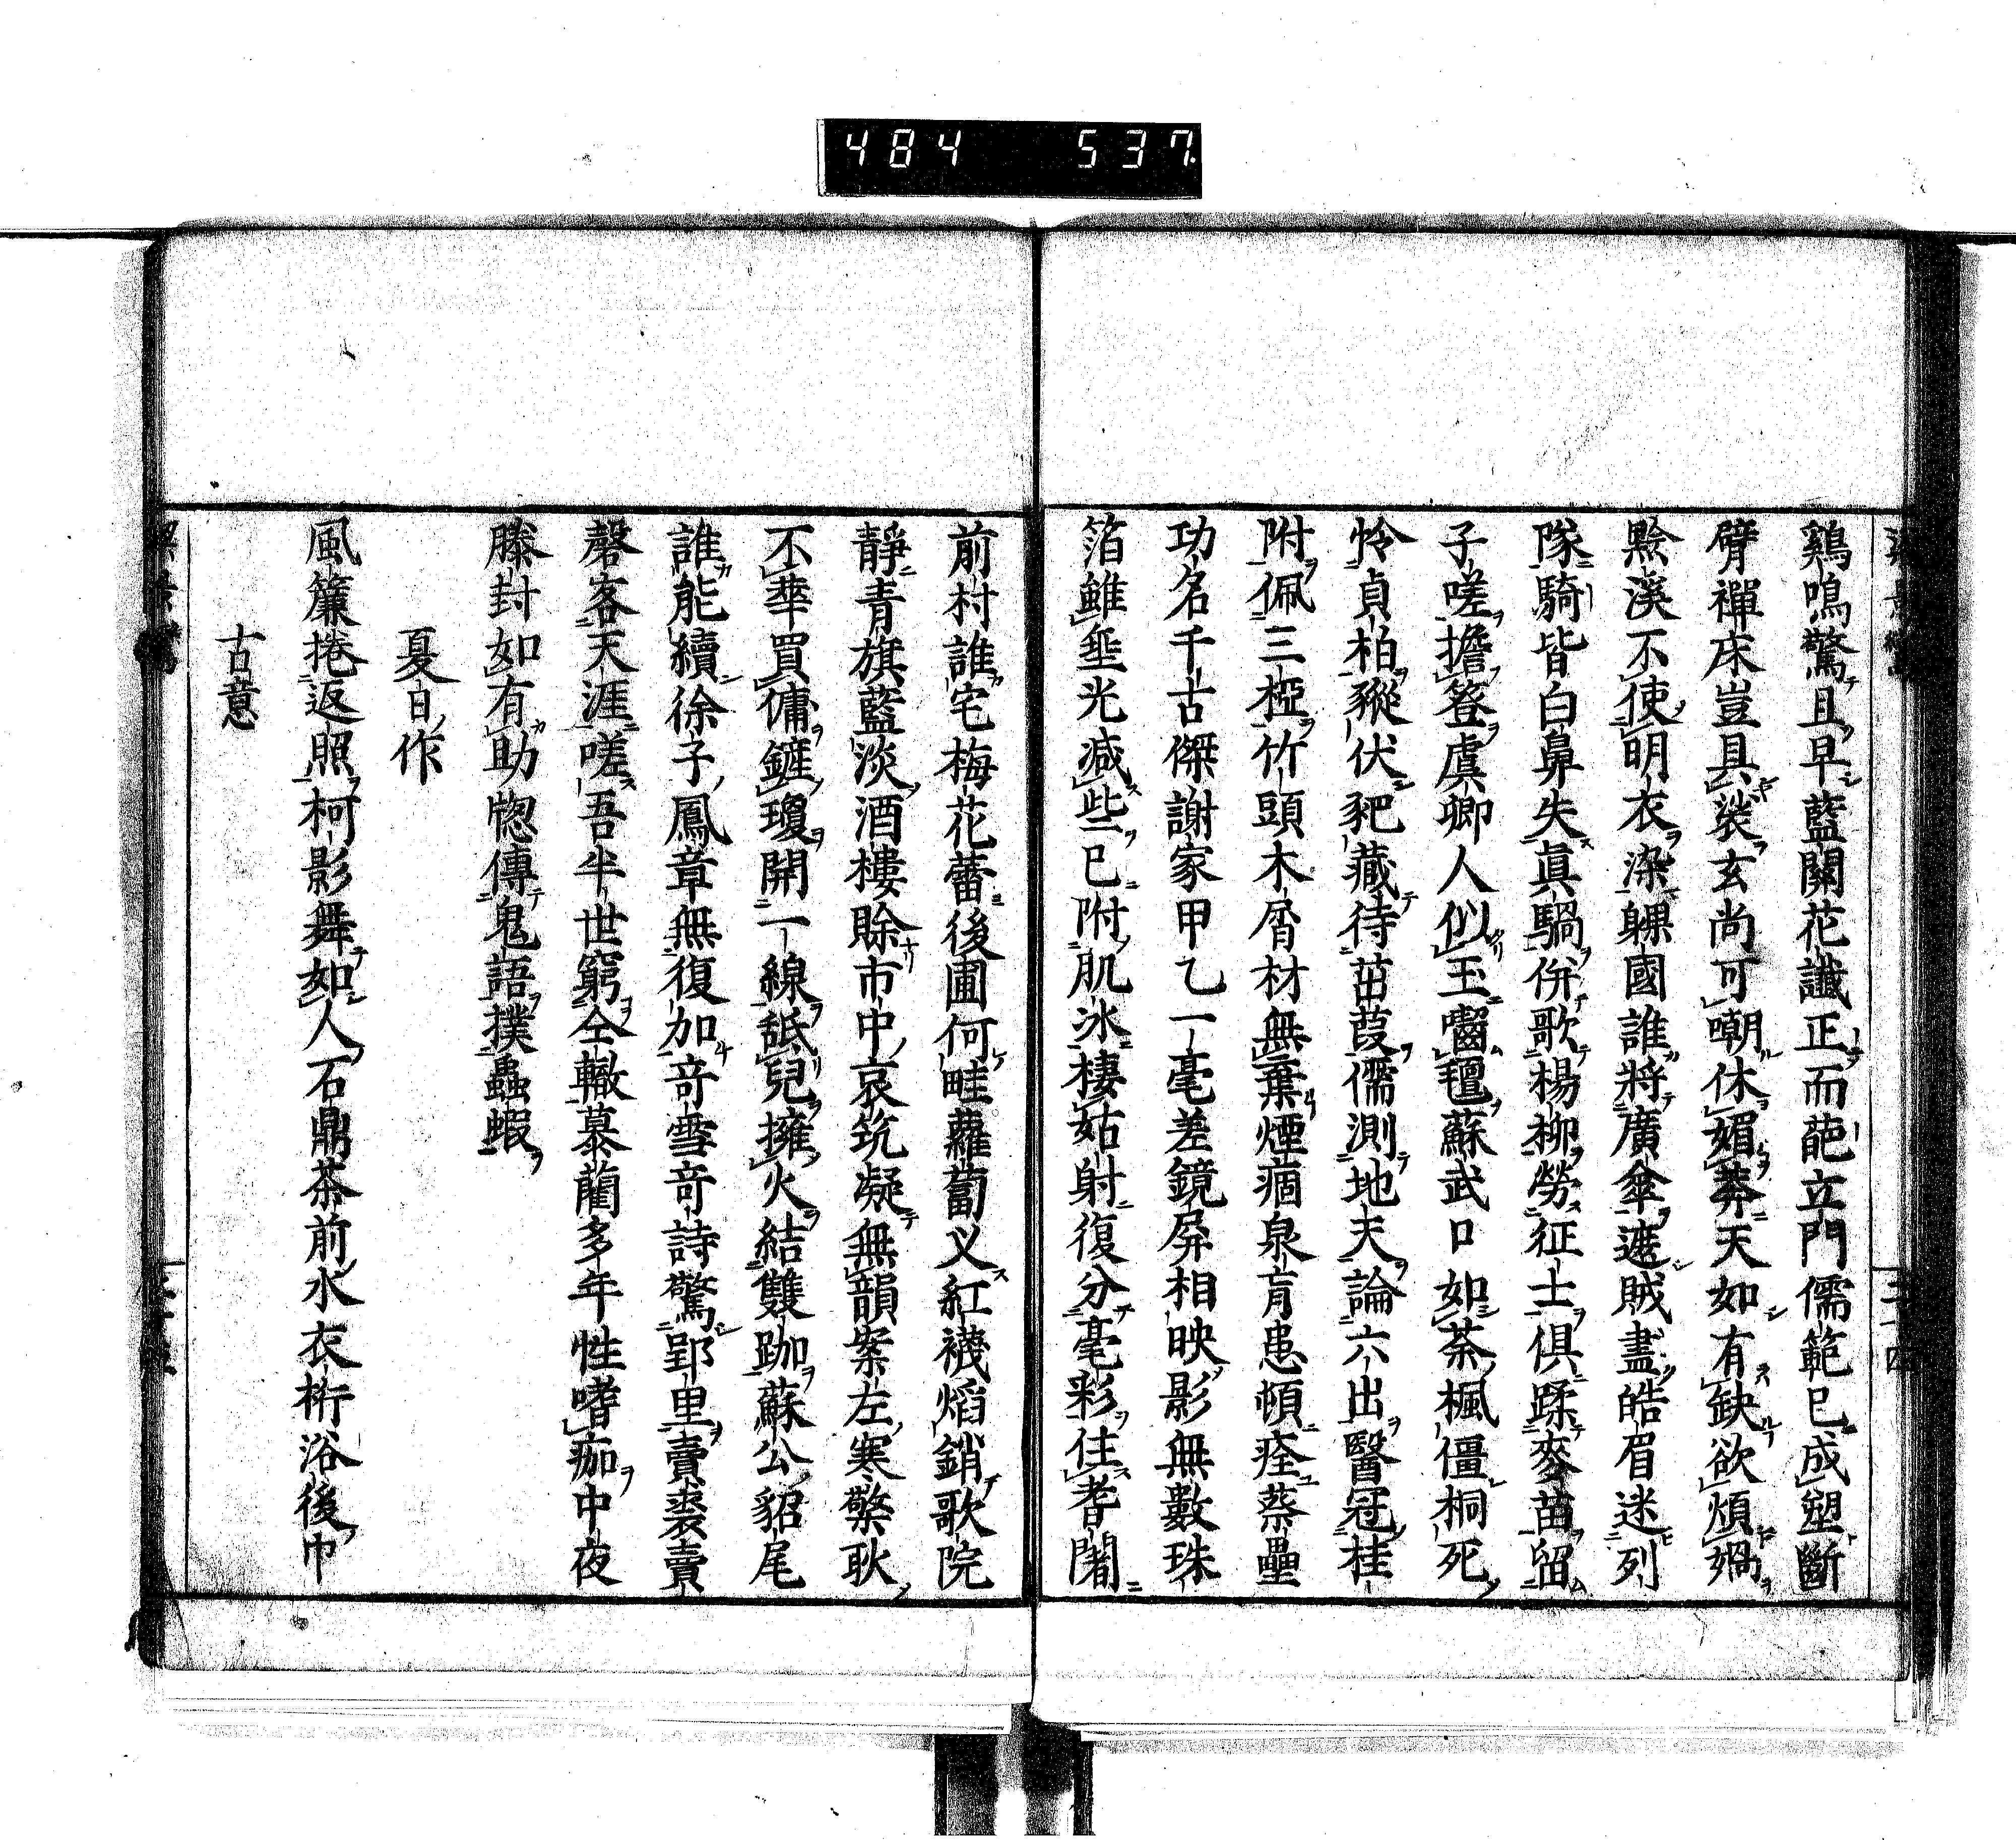 484 537
鷄鳴驚且早藍關花讖正而葩立門儒範已成塑斷
臂禪床豈具裝玄尚可嘲休媚莽天如有缺欲煩媧
黥溪不使明衣染躶國誰將廣傘遮賊盡皓眉迷列
隊騎皆白鼻失眞騧併歌楊柳勞征士俱蹂麥苗留
子嗟擔簦虞卿人似玉囓氊蘇武口如茶楓僵桐死
怜貞柏豵伏豝藏待茁葭儒測地夫論六出醫冠桂
附佩三椏竹頭木屑材無棄煙痼泉肓患頓痊蔡壘
功名千古傑謝家甲乙一毫差鏡屏相映影無數珠
箔雖垂光減些已附肌冰棲姑射復分毫彩住耆闍
前村誰宅梅花蕾後圃何畦蘿蔔义紅襪熖銷歌院
靜青旗藍淡酒樓賖市中哀筑凝無韻案左寒檠耿
不華買傭鏟瓊開一線舐兒擁火結雙跏蘇公貂尾
誰能續徐子鳳章無復加竒雪竒詩驚郢里賣裘賣
磬客天涯嗟吾半世窮仝轍慕藺多年性嗜痂中夜
滕封如有助牕傳鬼語撲蟲蝦
夏日作
風簾捲返照柯影舞如人石鼎茶前水衣桁浴後巾
古意